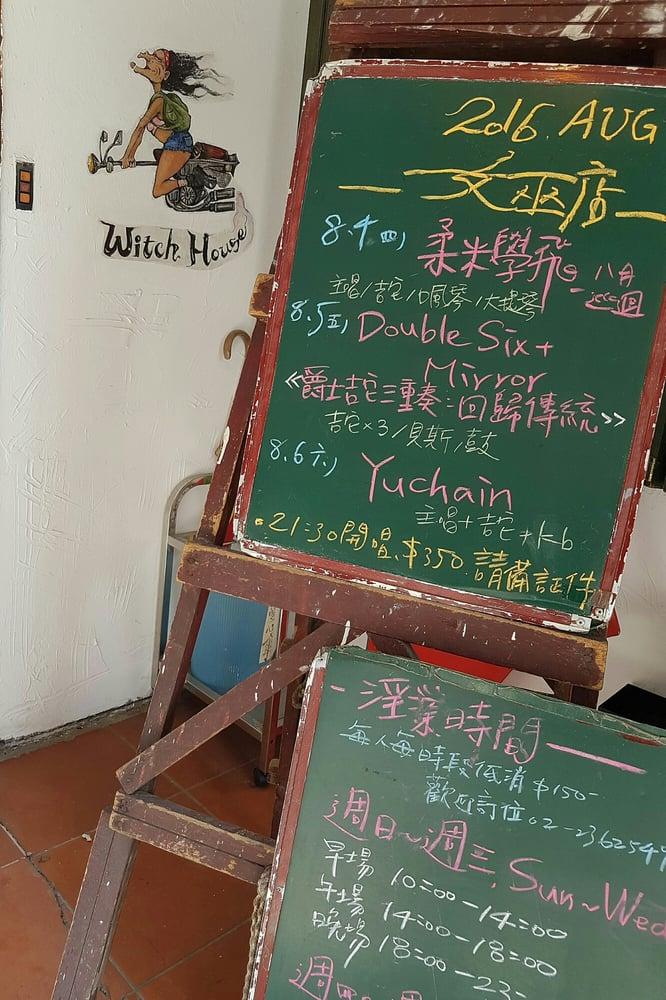 Witch House
2016. AUG
女巫店
8.4 (四) 柔米學飛 八月
主唱/吉它/口風琴/大提琴
8.5 (五) Double Six +
Mirror
《爵士吉它三重奏:回歸傳統》
吉它×3/貝斯/鼓
8.6 (六) Yuchain
主唱+吉它+kb
21:30開唱.$350 請備証件
-淫業時間-
每人每時段低消$150-
歡迎訂位02-2362549
週日~週三. Sun~Wed
早場 10:00-14:00
午場 14:00-18:00
晚場 18:00-23: